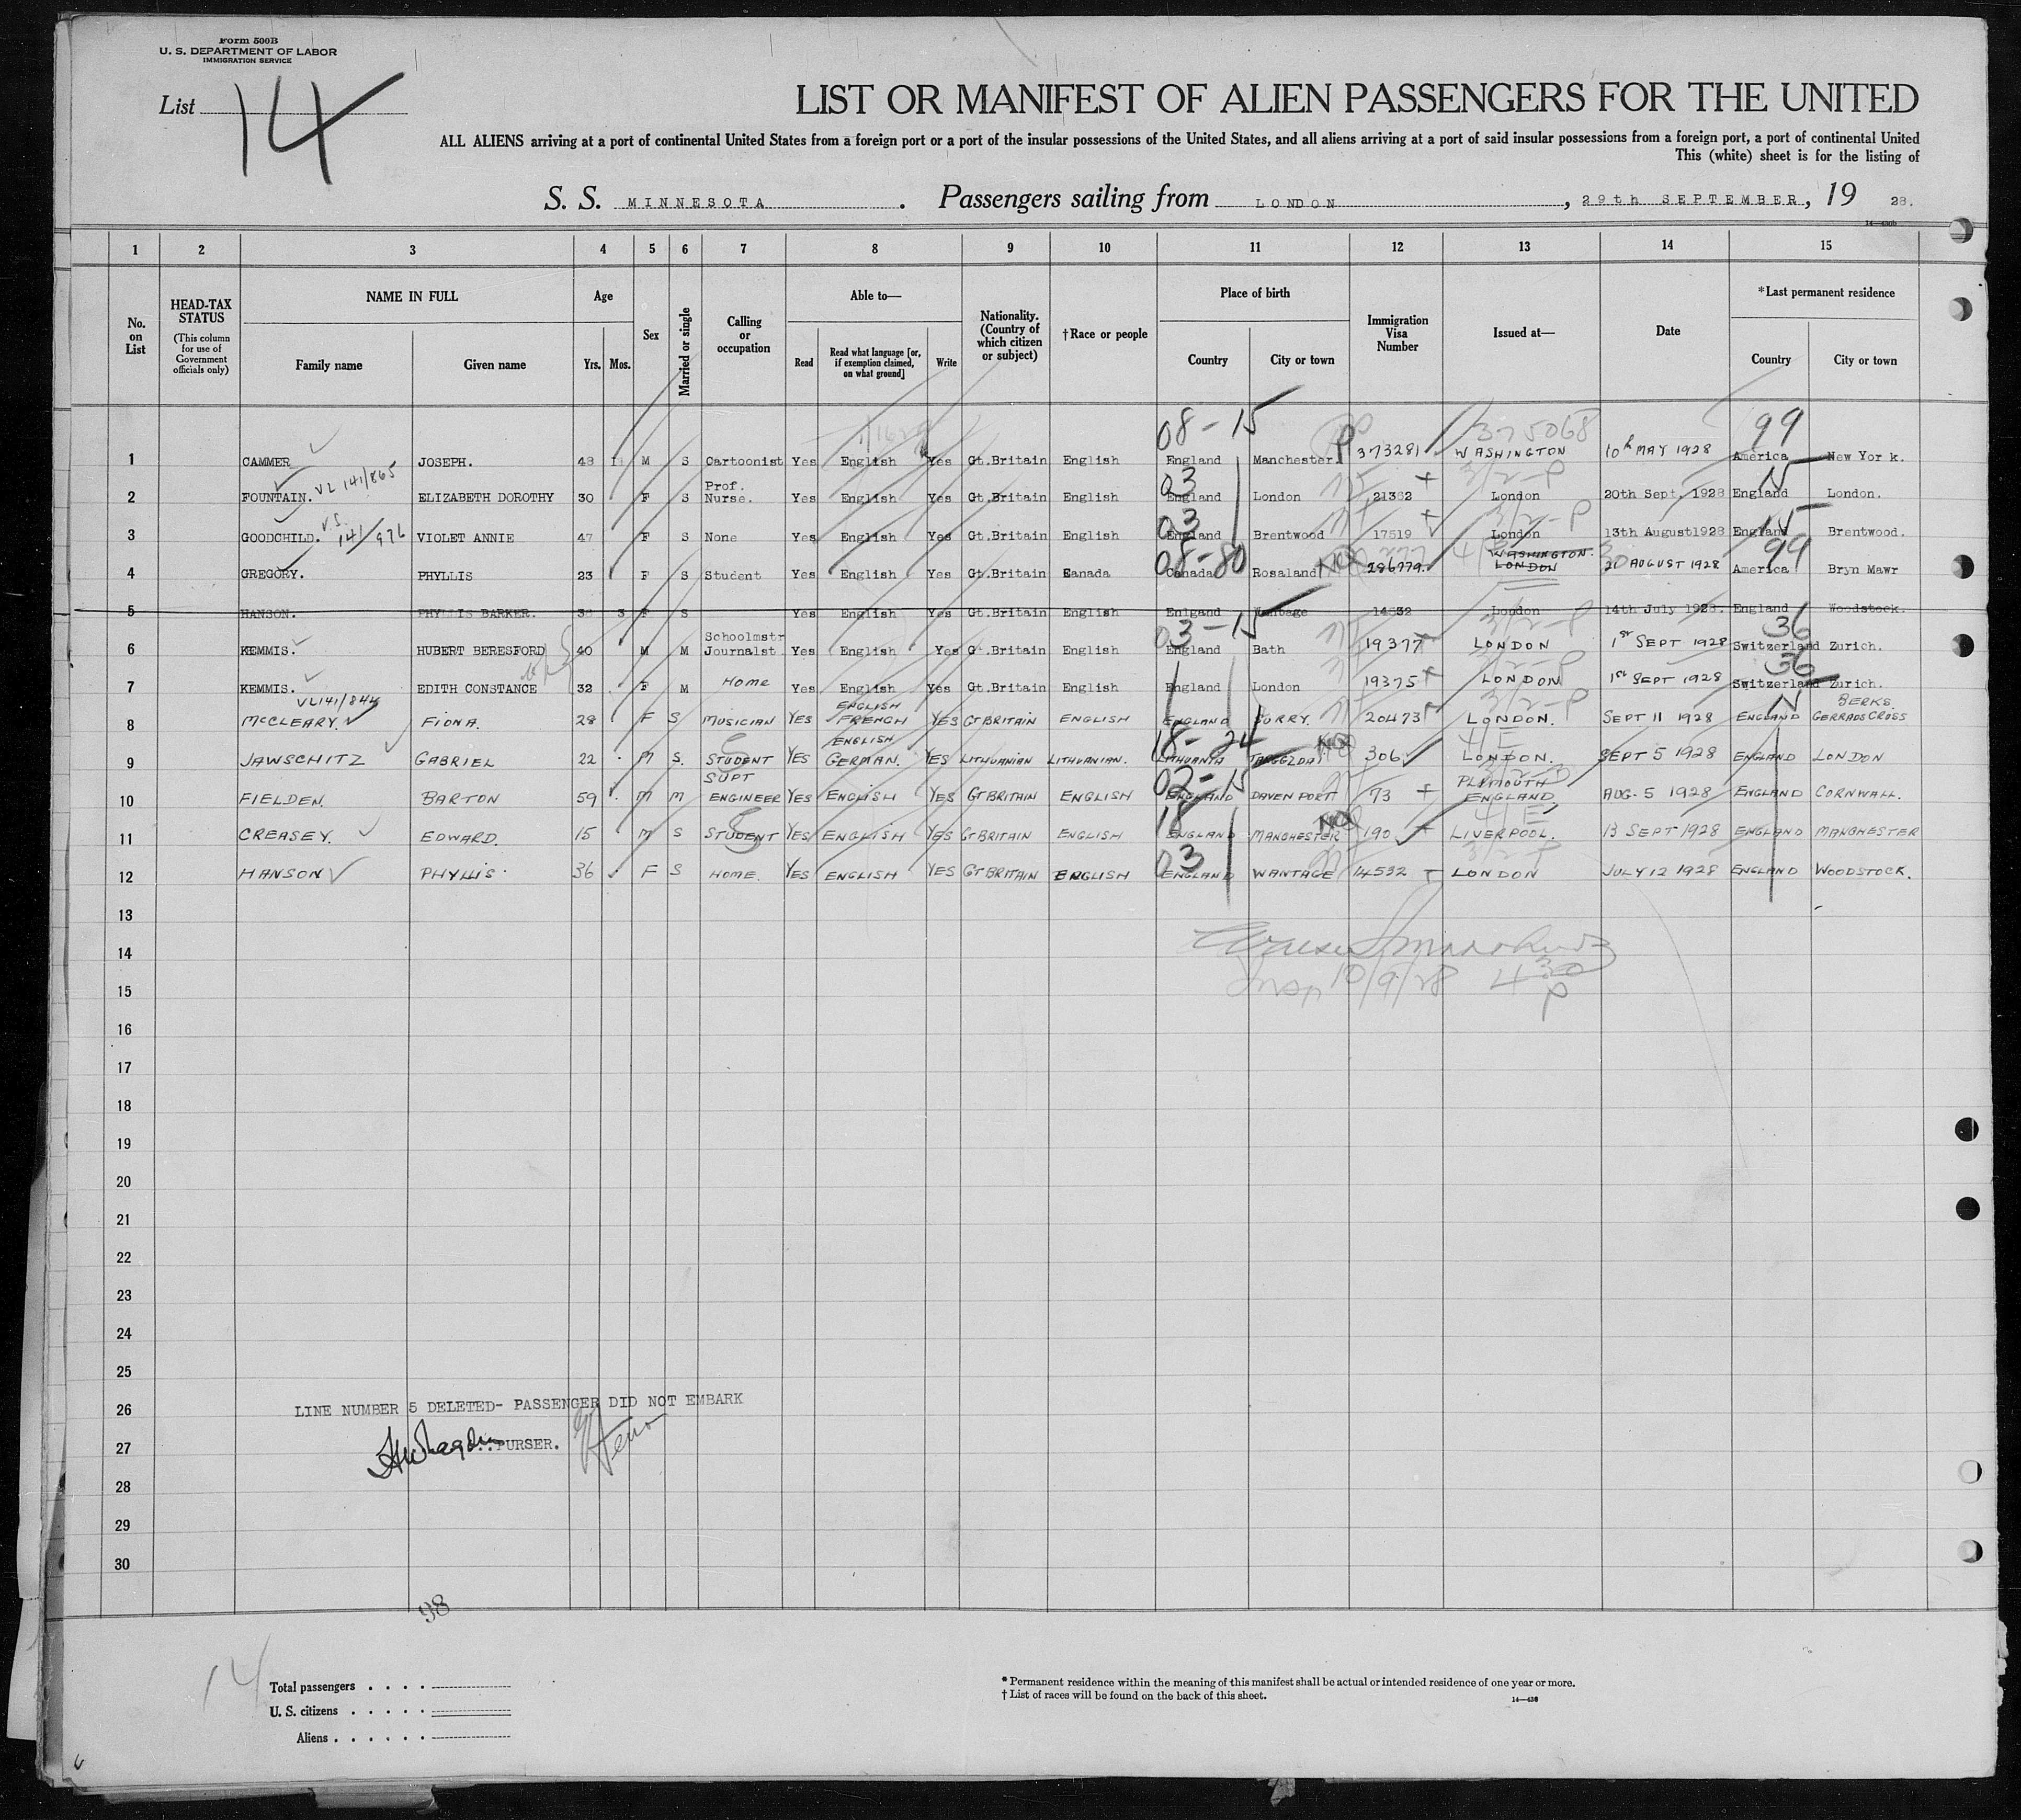 Form 500B
U. S. DEPARTMENT OF LABOR
IMMIGRATION SERVICE
List 14
LIST OR MANIFEST OF ALIEN PASSENGERS FOR THE UNITED
ALL ALIENS arriving at a port of continental United States from a foreign port or a port of the insular possessions of the United States, and all aliens arriving at a port of said insular possessions from a foreign port, a port of continental United
This (white) sheet is for the listing of
S. S. MINNESOTA . Passengers sailing from LONDON , 29th SEPTEMBER, 19 28.
1 2 3 4 5 6 7 8 9 10 11 12 13 14 15
No. on List
HEAD-TAX STATUS
(This column for use of Government officials only)
NAME IN FULL
Family name Given name
Age
Yrs. Mos.
Sex
Married or single
Calling or occupation
Able to—
Read Read what language [or, if exemption claimed, on what ground] Write
Nationality. (Country of which citizen or subject)
†Race or people
Place of birth
Country City or town
Immigration Visa Number
Issued at—
Date
*Last permanent residence
Country City or town
08-15 375068 99
1 CAMMER JOSEPH. 48 11 M S Cartoonist Yes English Yes Gt.Britain English England Manchester. P 373281 WASHINGTON 10th MAY 1928 America New Yor k.
VL 141/865 03 3/2-P N
2 FOUNTAIN. ELIZABETH DOROTHY 30 F S Prof. Nurse. Yes English Yes Gt.Britain English England London 21362 London 20th Sept. 1928 England London.
V.S. 141/976 03 3/2-P 15
3 GOODCHILD. VIOLET ANNIE 47 F S None Yes English Yes Gt.Britain English England Brentwood 17519 London 13th August1928 England Brentwood.
08-80 99
4 GREGORY. PHYLLIS 23 F S Student Yes English Yes Gt.Britain Eanada Canada Rosaland 286779. WASHINGTON. LONDON AUGUST 1928 America Bryn Mawr
5 HANSON. PHYLLIS BARKER. 36 3 F S Yes English Yes Gt.Britain English Enlgand Wantage 14532 London 14th July 1928. England Woodstock.
03-15 3/2-P 36
6 KEMMIS. HUBERT BERESFORD 40 M M Schoolmstr Journalst. Yes English Yes G.Britain English England Bath 19377 LONDON 1st SEPT 1928 Switzerland Zurich.
3/2-P 36
7 KEMMIS. EDITH CONSTANCE 32 F M HOME Yes English Yes Gt.Britain English England London 19375 LONDON 1st SEPT 1928 Switzerland Zurich.
VL141/844 3/2-P N
8 McCLEARY. FIONA. 28 F S MUSICIAN YES ENGLISH FRENCH YES GT BRITAIN ENGLISH ENGLAND SURRY. 20473 LONDON. SEPT 11 1928 ENGLAND BERKS. GERRADS CROSS
18-24 4/E
9 JAWSCHITZ GABRIEL 22 M S. STUDENT YES ENGLISH GERMAN. YES LITHUANIAN LITHUANIAN. LITHUANIA 306 LONDON. SEPT 5 1928 ENGLAND LONDON
02-15
10 FIELDEN. BARTON 59 M M SUPT ENGINEER YES ENGLISH YES GT BRITAIN ENGLISH ENGLAND DAVENPORT 73 PLYMOUTH ENGLAND AUG. 5 1928 ENGLAND CORNWALL.
18 4/E
11 CREASEY. EDWARD. 15 M S STUDENT YES ENGLISH YES GT BRITAIN ENGLISH ENGLAND MANCHESTER 190 LIVERPOOL. 13 SEPT 1928 ENGLAND MANCHESTER
03 3/2-P
12 HANSON PHYLLIS. 36 F S HOME. YES ENGLISH YES GT BRITAIN ENGLISH ENGLAND WANTAGE 14532 LONDON JULY 12 1928 ENGLAND WOODSTOCK.
13
14
15 Insp 10/9/28 4 30 P
16
17
18
19
20
21
22
23
24
25
26 LINE NUMBER 5 DELETED- PASSENGER DID NOT EMBARK
27 PURSER.
28
29
30
98
14
Total passengers
U. S. citizens
Aliens
* Permanent residence within the meaning of this manifest shall be actual or intended residence of one year or more.
† List of races will be found on the back of this sheet.
14—438